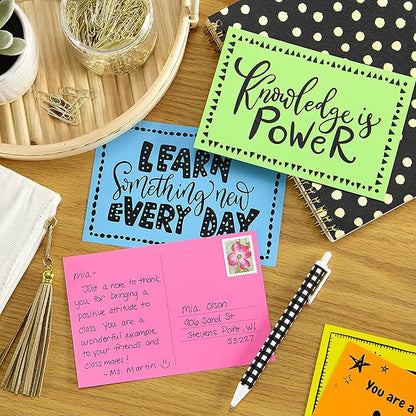 Knowledge is
POWER
LEARN
Something new
EVERY DAY
mia-
Just a note to thank
you for bringing a
positive attitude to
class. You are a
wonderful example
to your friends and
class mates!
- Ms. Martin
Mia Olson
906 Sand St
Stevens Point, WI
53227
You are a